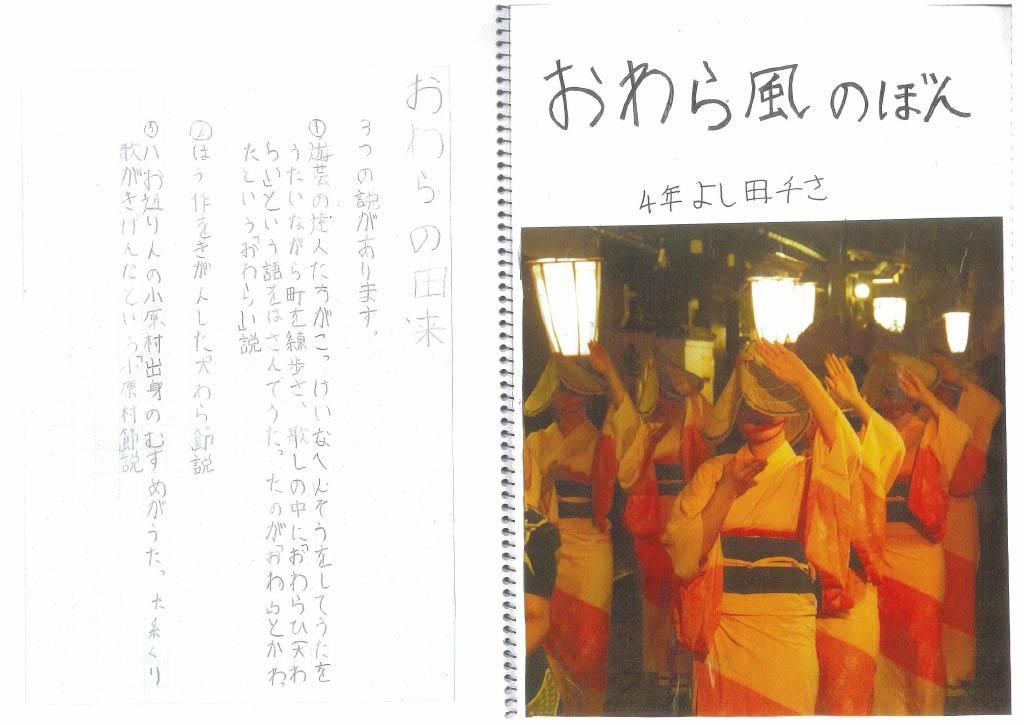 おわら風のぼん
4年よし田千さ
おわらの田来
3つの説があります。
①遊芸の達人たちがこっけいなへんそうをしてうたを
うたいながら町を練歩き、歌しの中に「おわらひ大わ
らい」という語をはさんでうたったのが「おわら」とかわっ
たという「おわらい」説
②ほう作をきがんした大わら節説
③八お近りんの小原村出身のむすめがうたった糸くり
歌がきげんだという「小原村節説